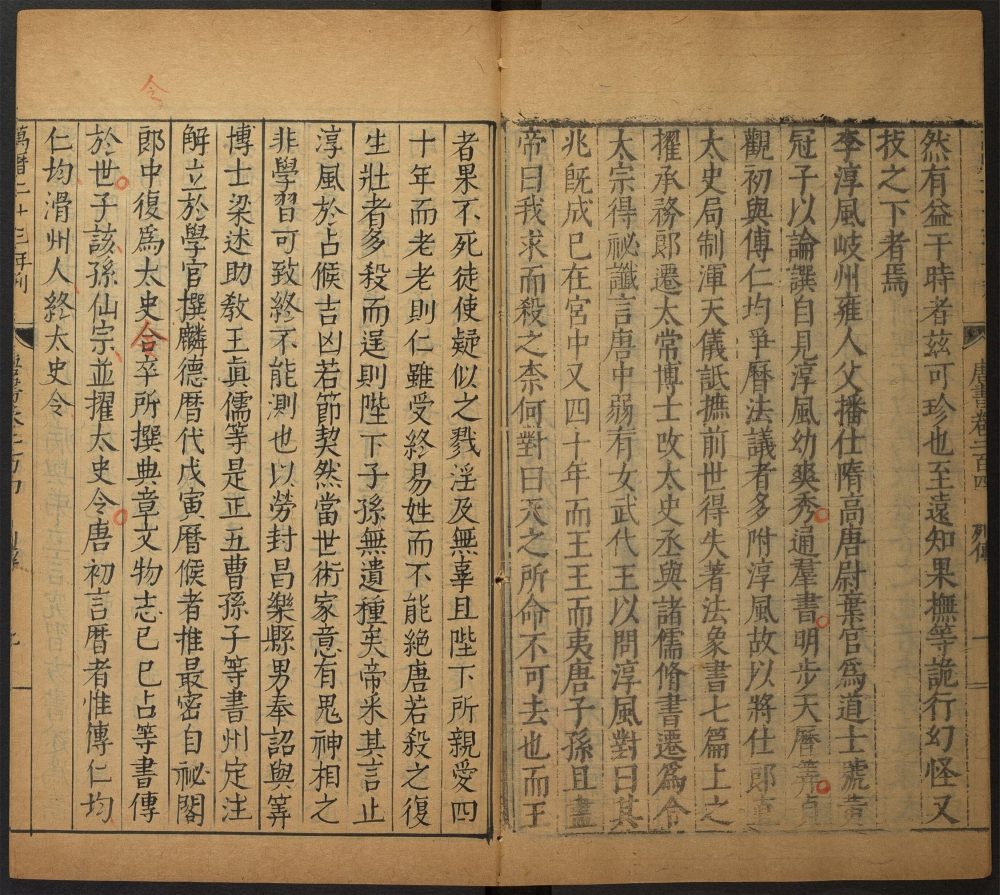 唐書卷二百四 列傳
然有益于時者茲可珍也至遠知果撫等詭行幻怪又
技之下者焉
李淳風岐州雍人父播仕隋高唐尉棄官為道士號黃
冠子以論譔自見淳風幼爽秀通羣書明步天曆筭貞
觀初與傅仁均爭曆法議者多附淳風故以將仕郎直
太史局制渾天儀詆摭前世得失著法象書七篇上之
擢承務郎遷太常博士改太史丞與諸儒脩書遷為令
太宗得祕讖言唐中弱有女武代王以問淳風對曰其
兆既成已在宮中又四十年而王王而夷唐子孫且盡
帝曰我求而殺之柰何對曰天之所命不可去也而王
者果不死徒使疑似之戮淫及無辜且陛下所親愛四
十年而老老則仁雖受終易姓而不能絕唐若殺之復
生壯者多殺而逞則陛下子孫無遺種矣帝采其言止
淳風於占候吉凶若節契然當世術家意有鬼神相之
非學習可致終不能測也以勞封昌樂縣男奉詔與筭
博士梁述助教王眞儒等是正五曹孫子等書州定注
解立於學官撰麟德曆代戊寅曆候者推最密自祕閣
郎中復為太史合卒所撰典章文物志乙巳占等書傳
令
令
於世子該孫仙宗並擢太史令唐初言曆者惟傅仁均
仁均滑州人終太史令
萬曆二十三年刊